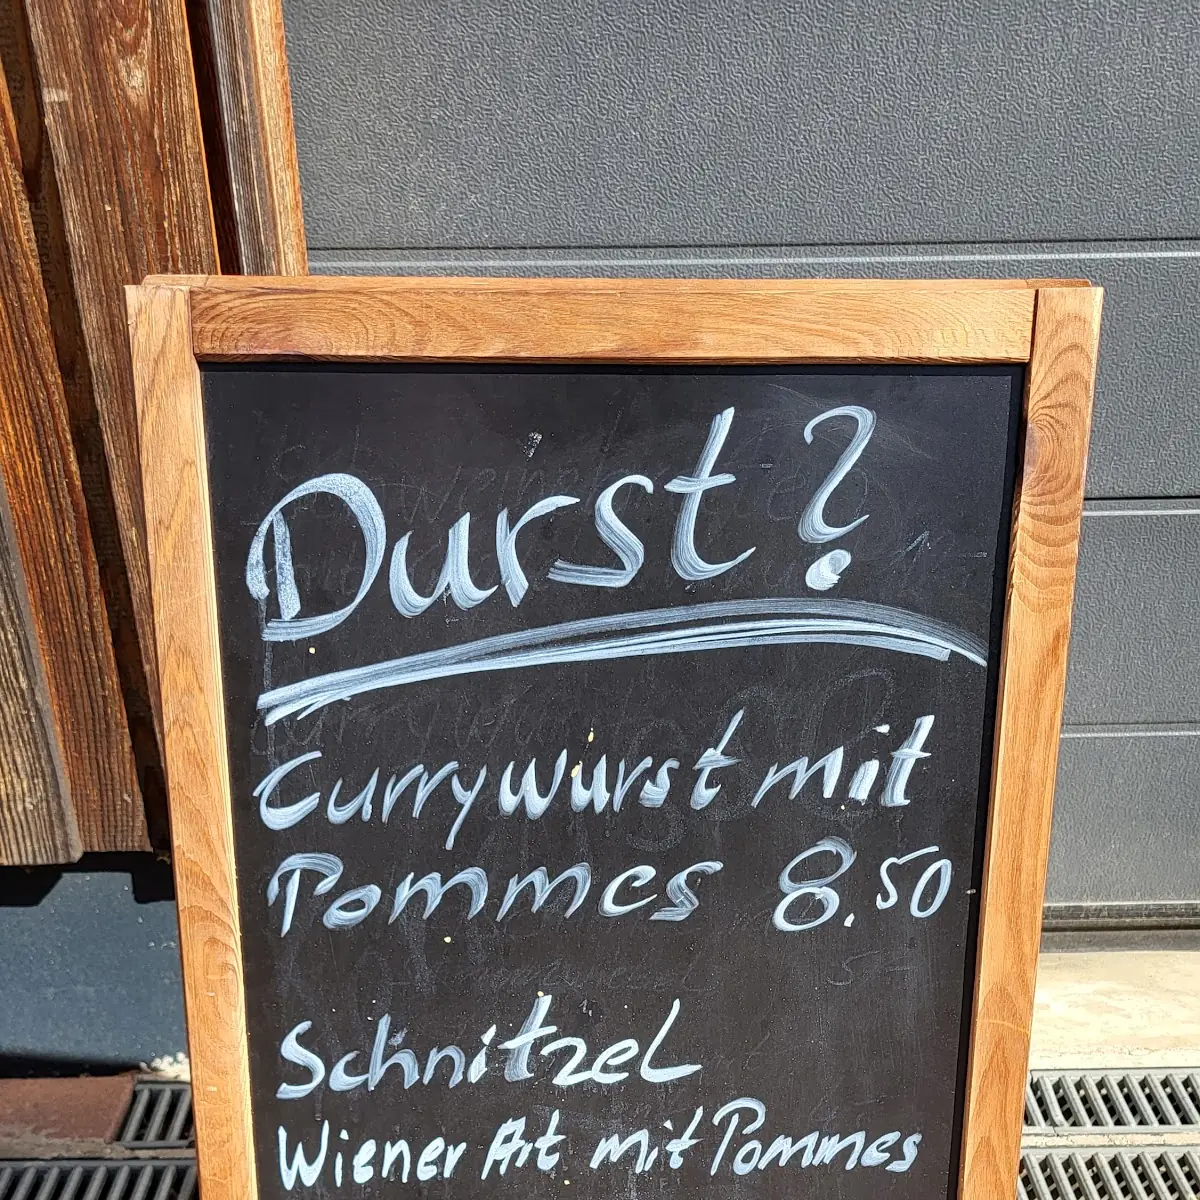 Durst?
Currywurst mit
Pommes 8.50
Schnitzel
Wiener Art mit Pommes